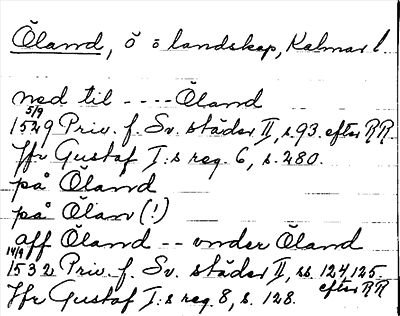 Öland, ö o landskap, Kalmar l.
ned til ---- Öland
5/9
1529 Priv. f. Sv. städer II, s. 93. efter RR
Jfr Gustaf I:s reg. 6, s. 280.
på Öland
på Ölan (!)
aff Öland -- vnder Öland
14/9
1532 Priv. f. Sv. städer II, ss. 124, 125.
efter RR
Jfr Gustaf I:s reg. 8, s. 128.